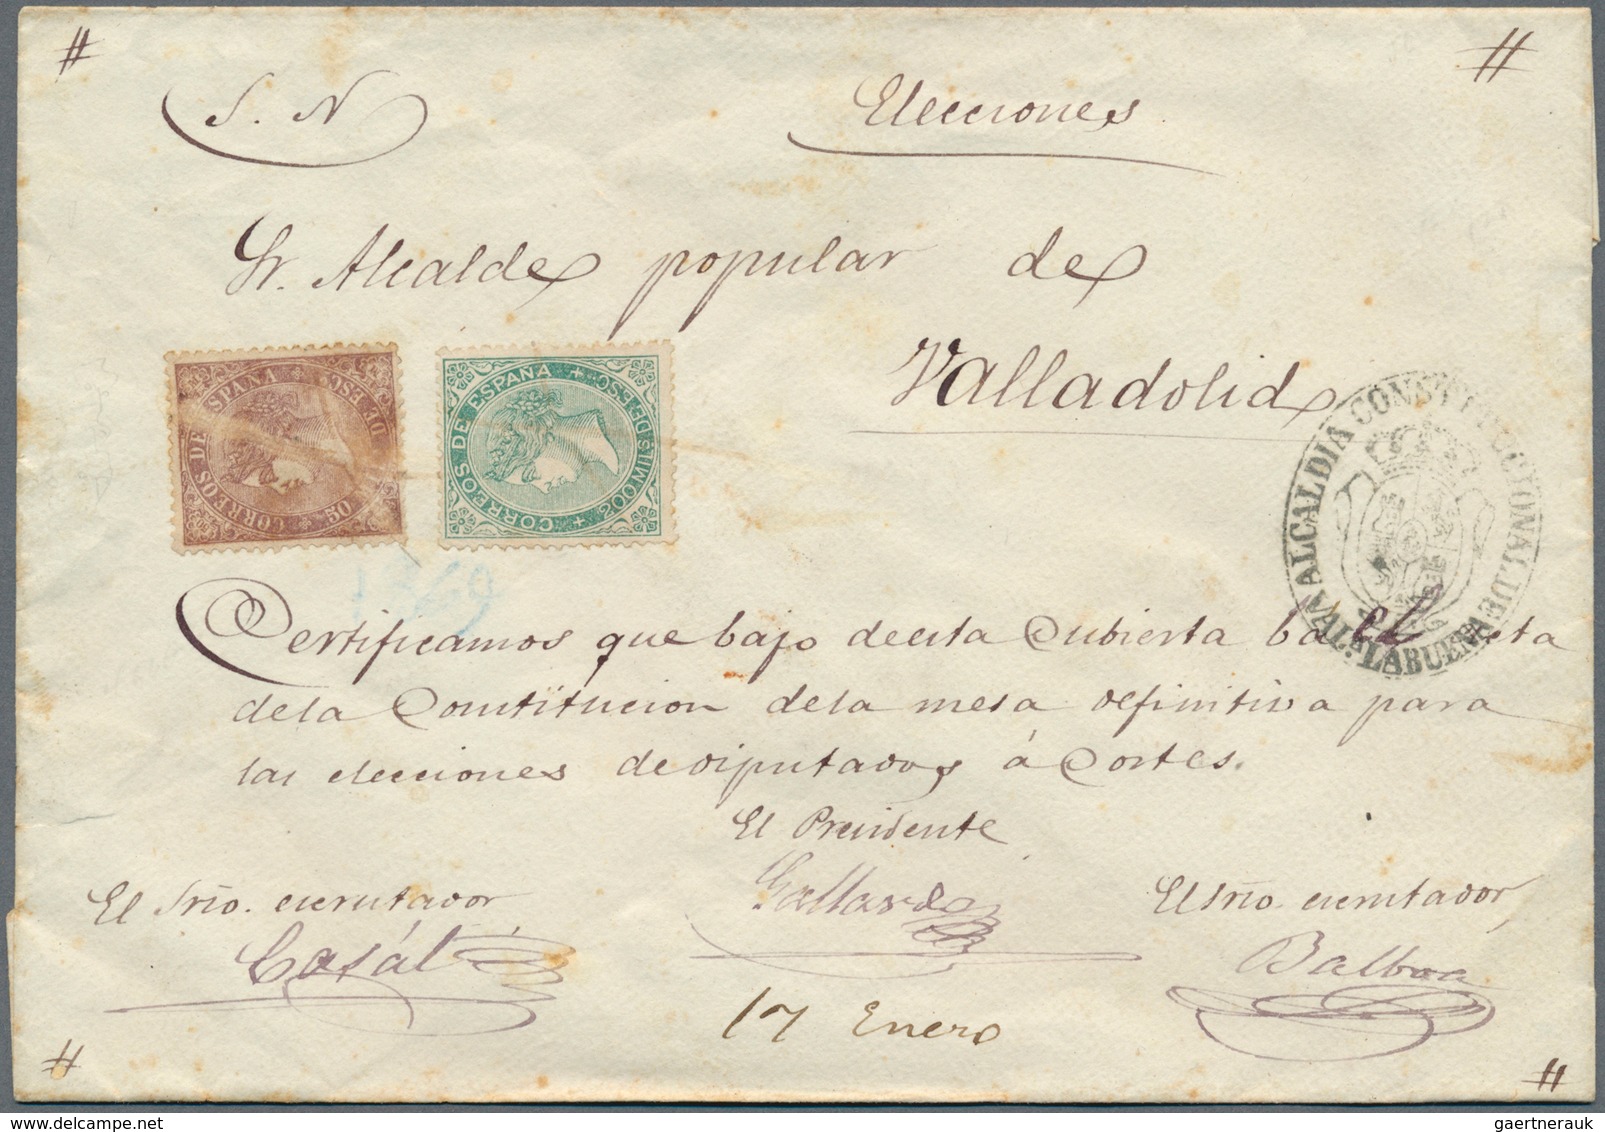 #
#
S. N
Elecciones
Sr. Alcalde popular de
Valladolid
CORREOS DE ESPAÑA
50 MS DE ESCO
CORREOS DE ESPAÑA
200 MILS DE ESCO
ALCALDIA CONSTITUCIONAL DE
VALBUENA
Certificamos que bajo de esta Cubierta ba el acta
de la Constitucion de la mesa definitiva para
las elecciones de diputados á Cortes.
El Presidente
El Srio. escrutador,
Gallardo
El Srio. escrutador,
Casát
Balboa
17 Enero
#
#
gaertnerauk //